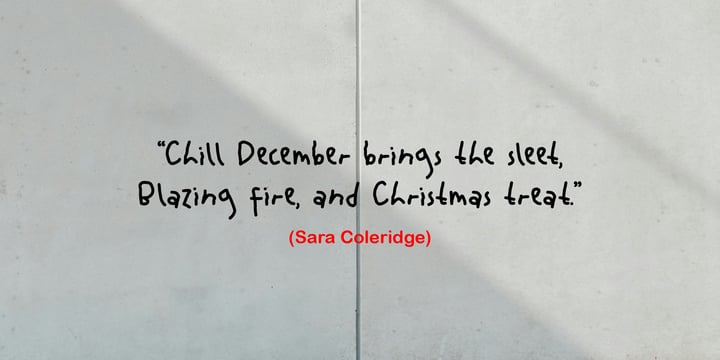 “Chill December brings the sleet,
Blazing fire, and Christmas treat.”
(Sara Coleridge)